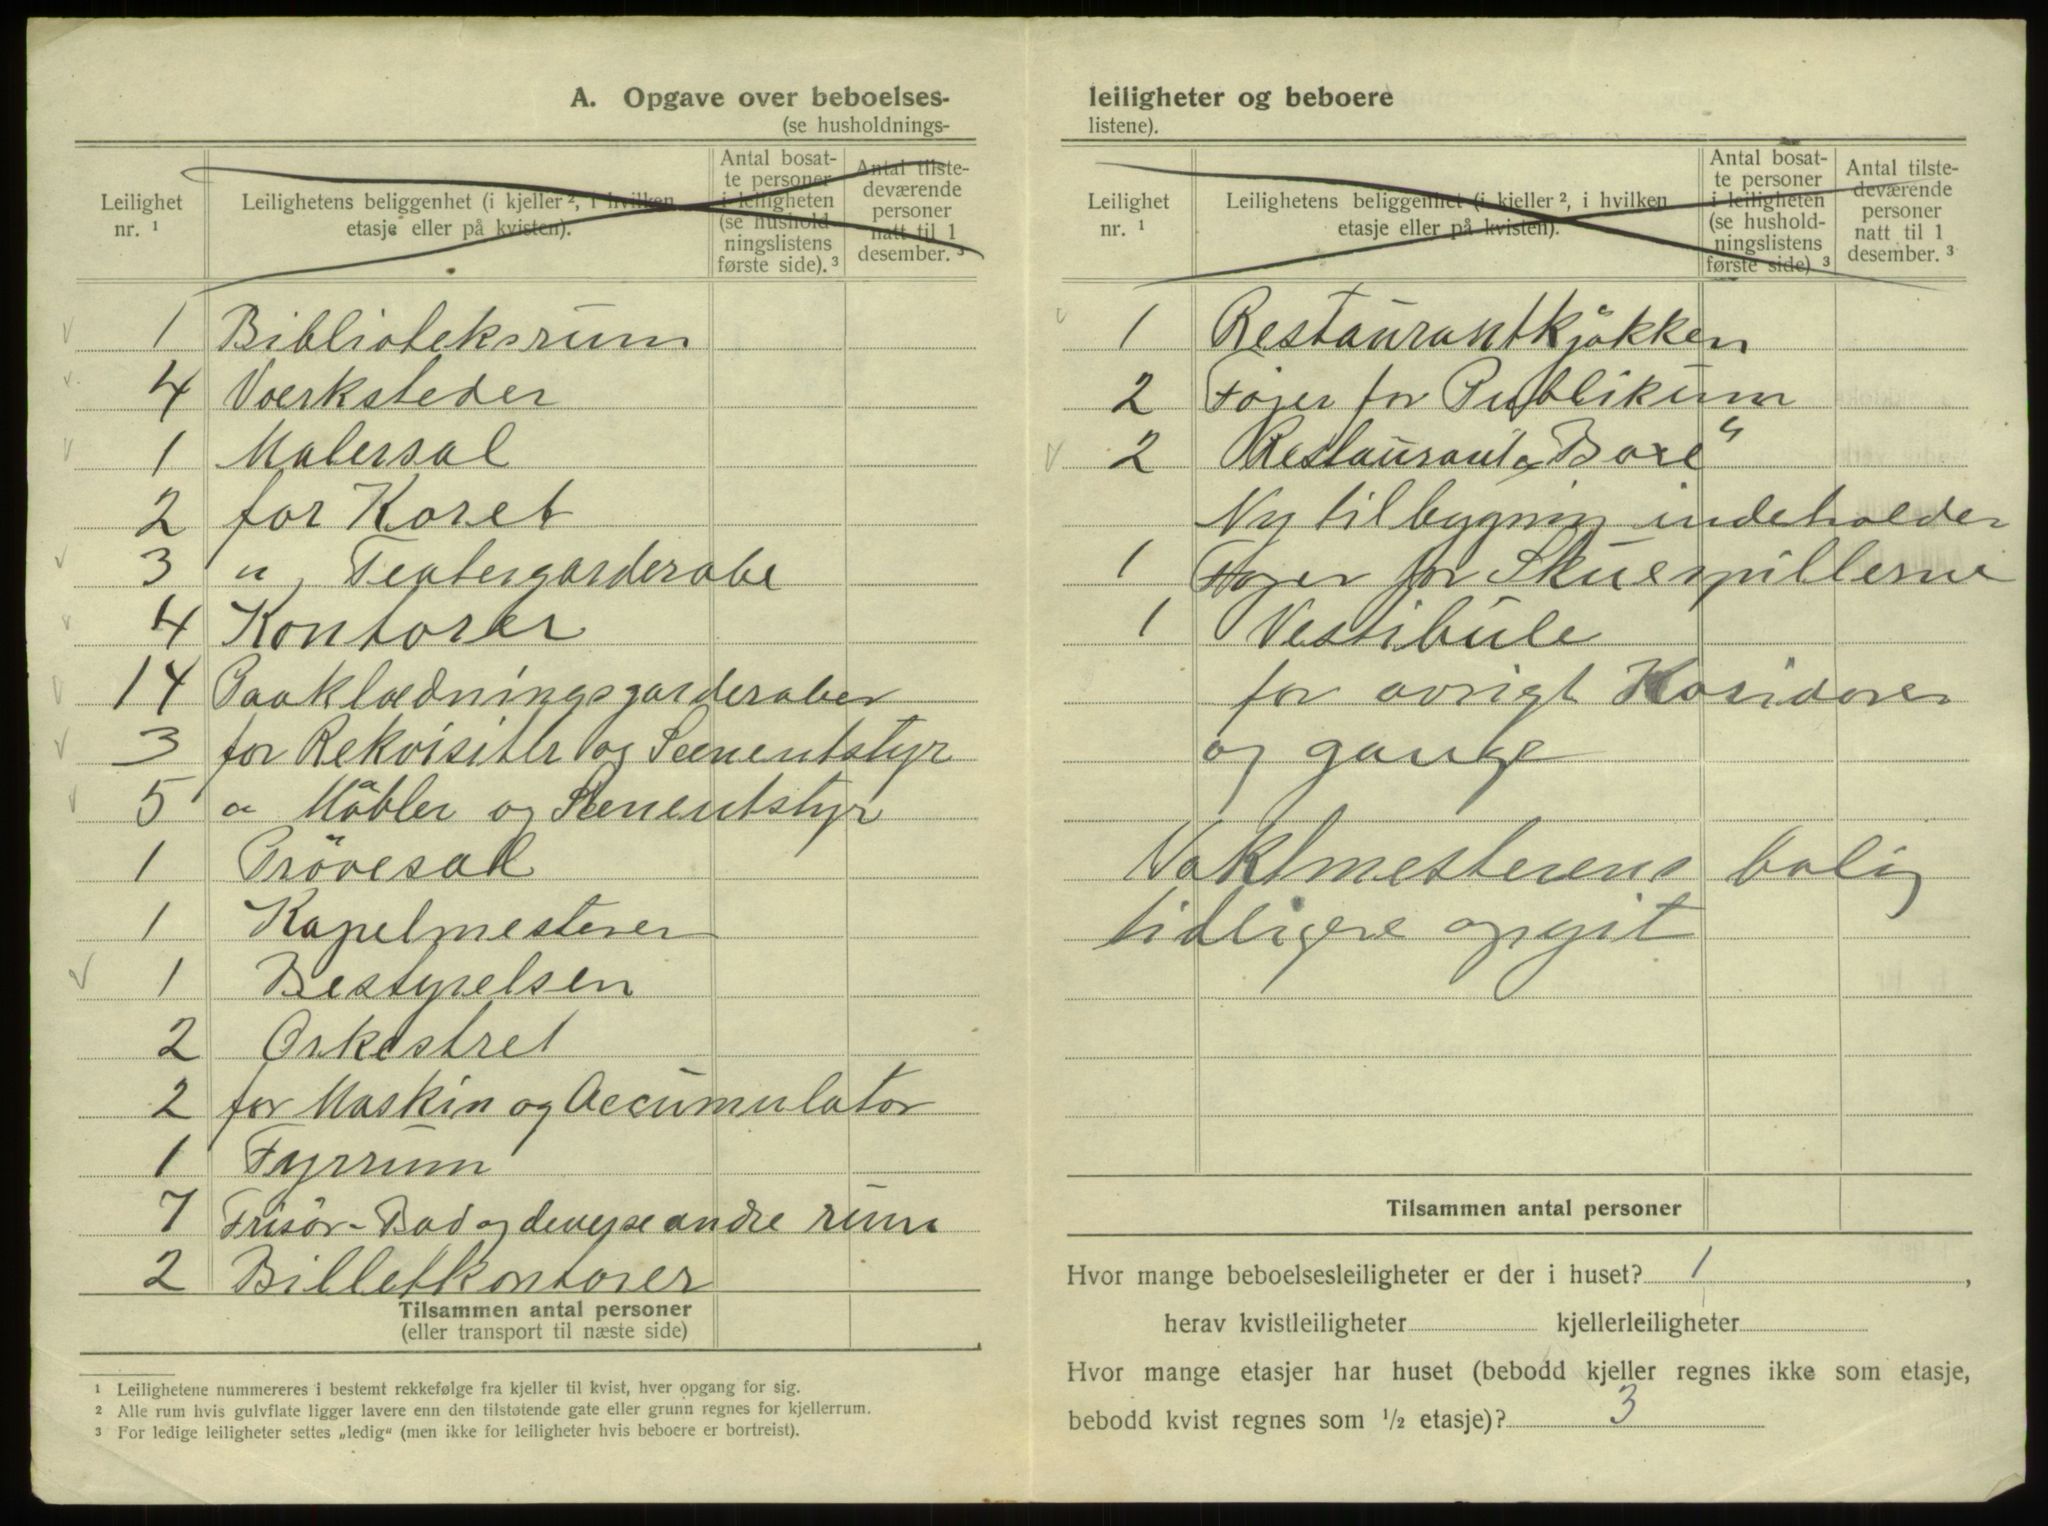 A. Opgave over beboelses-
(se husholdnings-
Leilighet
nr. ¹
Leilighetens beliggenhet (i kjeller ², i hvilken
etasje eller på kvisten).
Antal bosat-
te personer
i leiligheten
(se hushold-
ningslistens
første side). ³
Antal tilste-
deværende
personer
natt til 1
desember. ³
1 Biblioteksrum
4 Værksteder
1 Malersal
2 for Koret
3 " Teatergarderobe
4 Kontorer
14 Paaklædningsgarderober
3 for Rekvisiter og Sceneutstyr
5 " Møbler og Sceneutstyr
1 Prövesal
1 Kapelmesteren
1 Bestyrelsen
2 Orkestret
2 for Maskin og Accumulator
1 Fyrrum
7 Frisör-Bad og deverse andre rum
2 Billetkontorer
Tilsammen antal personer
(eller transport til næste side)
¹ Leilighetene nummereres i bestemt rekkefølge fra kjeller til kvist, hver opgang for sig.
² Alle rum hvis gulvflate ligger lavere enn den tilstøtende gate eller grunn regnes for kjellerrum.
³ For ledige leiligheter settes „ledig“ (men ikke for leiligheter hvis beboere er bortreist).
leiligheter og beboere
listene).
Leilighet
nr. ¹
Leilighetens beliggenhet (i kjeller ², i hvilken
etasje eller på kvisten).
Antal bosat-
te personer
i leiligheten
(se hushold-
ningslistens
første side) ³
Antal tilste-
deværende
personer
natt til 1
desember. ³
1 Restaurantkjøkken
2 Fojer for Publikum
2 Restaurant "
Ny tilbygning indeholder
1 Fojer for Skuespillerne
1 Vestibule
for øvrigt Koridorer
og gange
Vaktmesterens bolig
tidligere opgit
Tilsammen antal personer
Hvor mange beboelsesleiligheter er der i huset? 1,
herav kvistleiligheter kjellerleiligheter
Hvor mange etasjer har huset (bebodd kjeller regnes ikke som etasje,
bebodd kvist regnes som ½ etasje)? 3